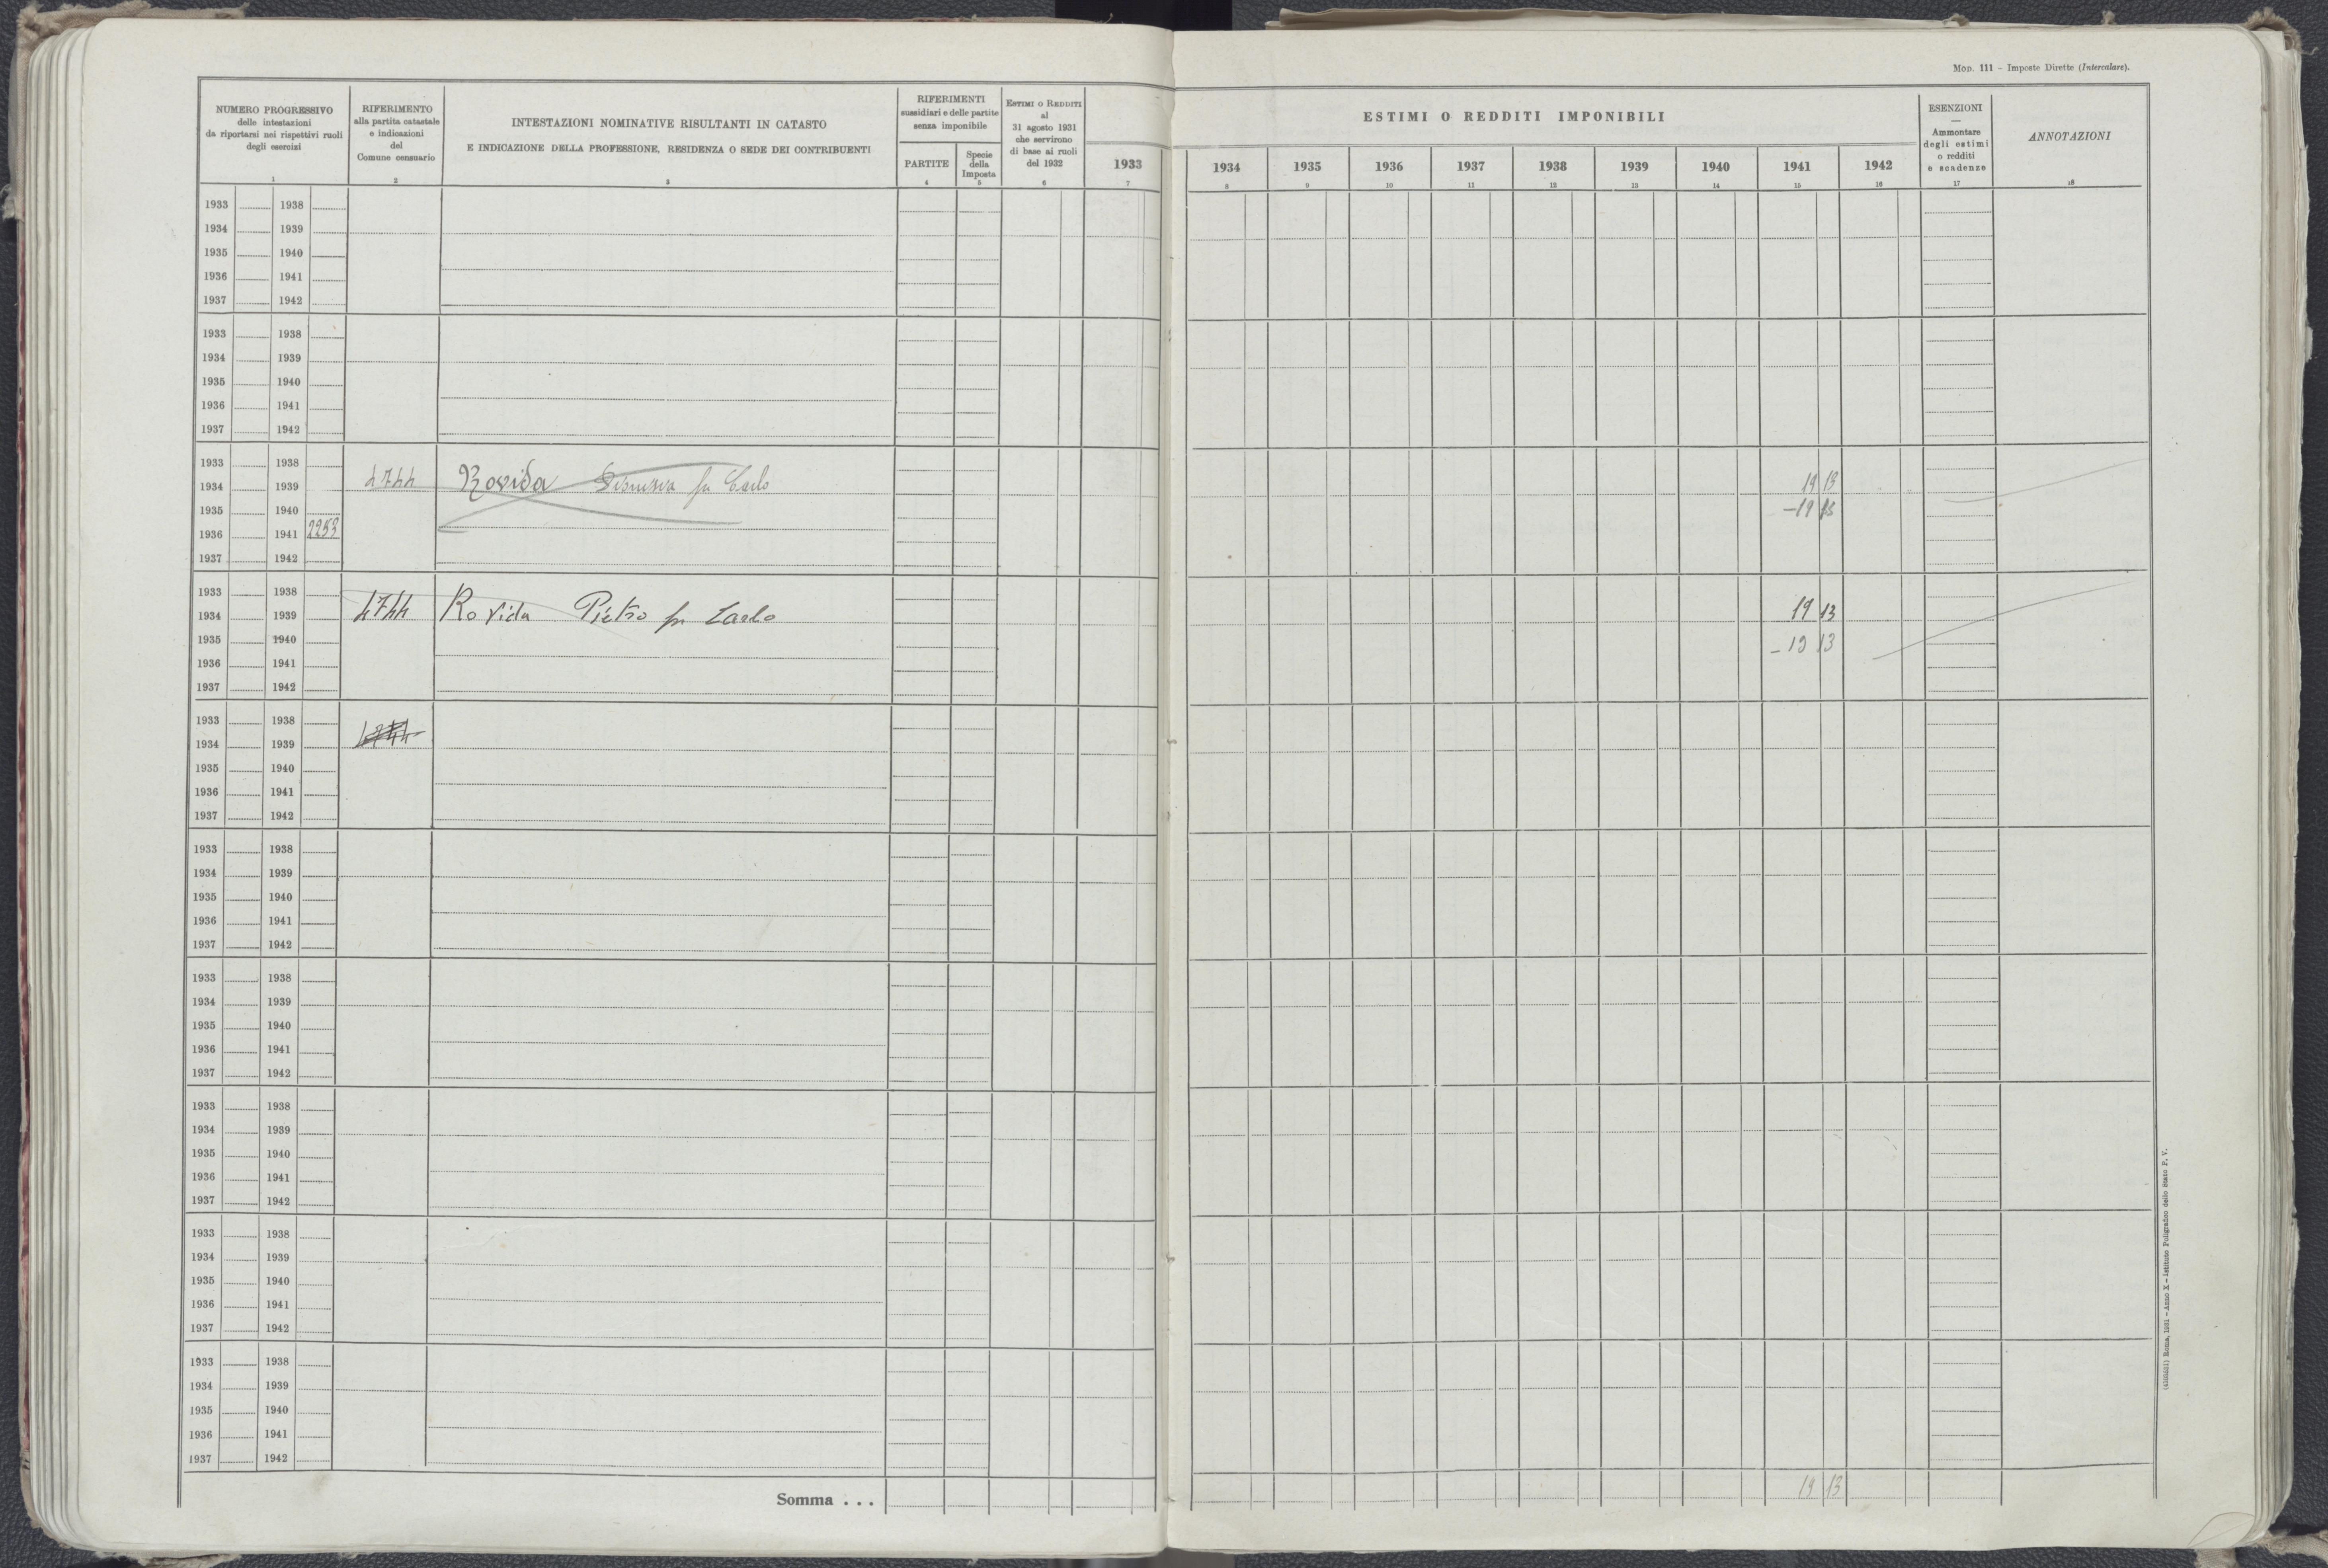 Mod. 111 - Imposte Dirette (Intercalare).
NUMERO PROGRESSIVO
delle intestazioni
da riportarsi nei rispettivi ruoli
degli esercizi
1
RIFERIMENTO
alla partita catastale
e indicazioni
del
Comune censuario
2
INTESTAZIONI NOMINATIVE RISULTANTI IN CATASTO
E INDICAZIONE DELLA PROFESSIONE, RESIDENZA O SEDE DEI CONTRIBUENTI
3
RIFERIMENTI
sussidiari e delle partite
senza imponibile
PARTITE
4
Specie
della
Imposta
5
Estimi o Redditi
al
31 agosto 1931
che servirono
di base ai ruoli
del 1932
6
1933
7
ESTIMI O REDDITI IMPONIBILI
1934 1935 1936 1937 1938 1939 1940 1941 1942
8 9 10 11 12 13 14 15 16
ESENZIONI
—
Ammontare
degli estimi
o redditi
e scadenze
17
ANNOTAZIONI
18
1933 1938
1934 1939
1935 1940
1936 1941
1937 1942
1933 1938
1934 1939
1935 1940
1936 1941
1937 1942
1933 1938
1934 1939 4744 Rovida fu Carlo 19 13
1935 1940 -19 13
1936 1941 2253
1937 1942
1933 1938
1934 1939 4744 Rovida Pietro fu Carlo 19 13
1935 1940 - 19 13
1936 1941
1937 1942
1933 1938
1934 1939 4744
1935 1940
1936 1941
1937 1942
1933 1938
1934 1939
1935 1940
1936 1941
1937 1942
1933 1938
1934 1939
1935 1940
1936 1941
1937 1942
1933 1938
1934 1939
1935 1940
1936 1941
1937 1942
1933 1938
1934 1939
1935 1940
1936 1941
1937 1942
1933 1938
1934 1939
1935 1940
1936 1941
1937 1942
Somma . . . 19 13
Roma, 1931 - Anno X - Istituto Poligrafico dello Stato P. V.